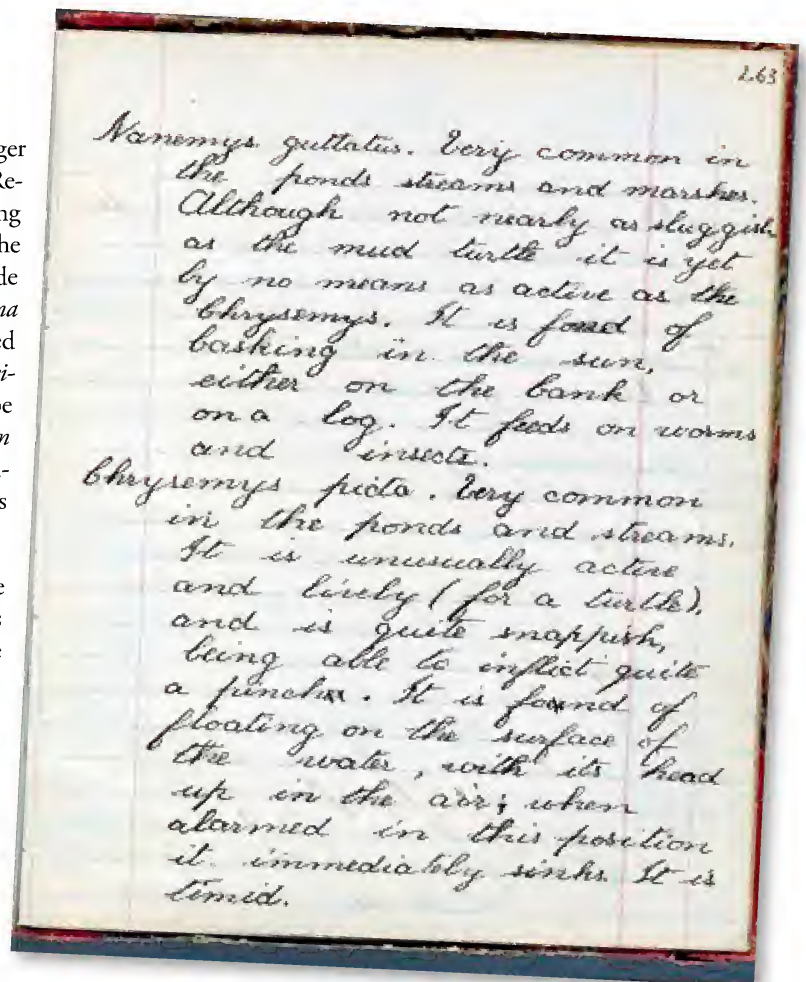 ger
Re-
ng
he
de
na
ed
i-
be
n
-
s
e
s
e
263
Nanemys guttatus. Very common in
the ponds streams and marshes.
Although not nearly as sluggish
as the mud turtle it is yet
by no means as active as the
Chrysemys. It is fond of
basking in the sun,
either on the bank or
on a log. It feeds on worms
and insects.
Chrysemys picta. Very common
in the ponds and streams.
It is unusually active
and lively (for a turtle),
and is quite snappish,
being able to inflict quite
a pinch. It is found of
floating on the surface of
the water, with its head
up in the air; when
alarmed in this position
it immediately sinks. It is
timid.